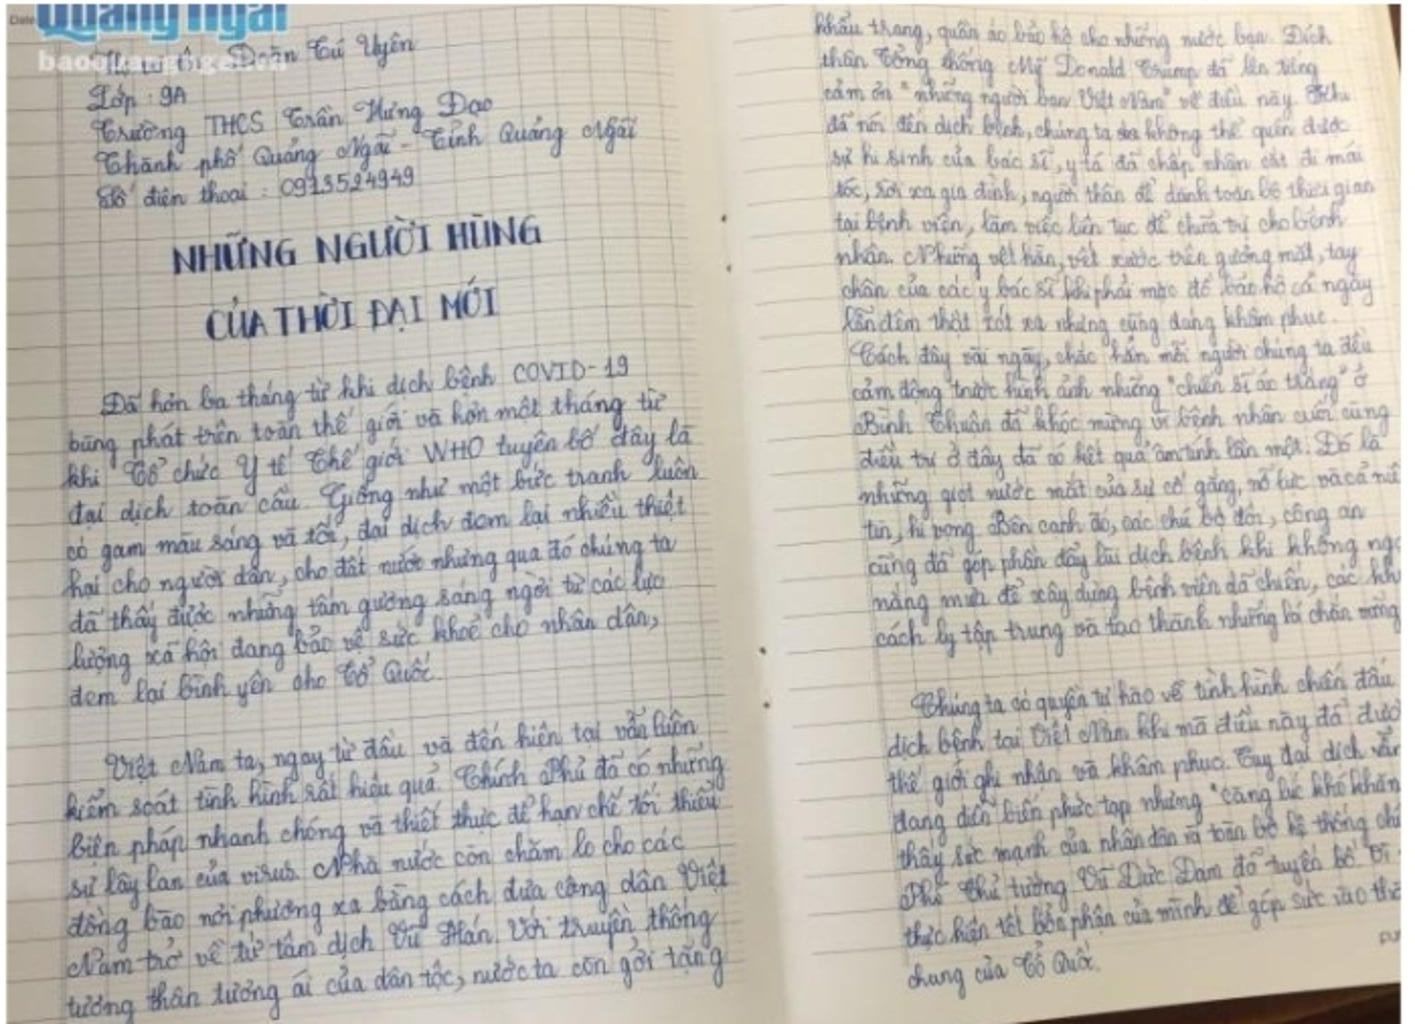 Quảng Ngãi
Đoàn Tú Uyên
Lớp : 9A
Trường THCS Trần Hưng Đạo
Thành phố Quảng Ngãi - Tỉnh Quảng Ngãi
Số điện thoại : 0913524949
NHỮNG NGƯỜI HÙNG
CỦA THỜI ĐẠI MỚI
Đã hơn ba tháng từ khi dịch bệnh COVID-19
bùng phát trên toàn thế giới và hơn một tháng từ
khi Tổ chức Y tế Thế giới WHO tuyên bố đây là
đại dịch toàn cầu. Giống như một bức tranh luôn
có gam màu sáng và tối, đại dịch đem lại nhiều thiệt
hại cho người dân, cho đất nước nhưng qua đó chúng ta
đã thấy được những tấm gương sáng ngời từ các lực
lượng xã hội đang bảo vệ sức khoẻ cho nhân dân,
đem lại bình yên cho Tổ Quốc.
Việt Nam ta, ngay từ đầu và đến hiện tại vẫn luôn
kiểm soát tình hình rất hiệu quả. Chính Phủ đã có những
biện pháp nhanh chóng và thiết thực để hạn chế tối thiểu
sự lây lan của virus. Nhà nước còn chăm lo cho các
đồng bào nơi phương xa bằng cách đưa công dân Việt
Nam trở về từ tâm dịch Vũ Hán. Với truyền thống
tương thân tương ái của dân tộc, nước ta còn gởi tặng
khẩu trang, quần áo bảo hộ cho những nước bạn. Đích
thân Tổng thống Mỹ Donald Trump đã lên tiếng
cảm ơn "những người bạn Việt Nam" về điều này. Khi
đã nói đến dịch bệnh, chúng ta không thể quên được
sự hi sinh của bác sĩ, y tá đã chấp nhận cắt đi mái
tóc, rời xa gia đình, người thân để dành toàn bộ thời gian
tại bệnh viện, làm việc liên tục để chữa trị cho bệnh
nhân. Những vết hằn, vết xước trên gương mặt, tay
chân của các y bác sĩ khi phải mặc đồ bảo hộ cả ngày
lẫn đêm thật xót xa nhưng cũng đáng khâm phục.
Cách đây vài ngày, chắc hẳn mỗi người chúng ta đều
cảm động trước hình ảnh những "chiến sĩ áo trắng" ở
Bình Thuận đã khóc mừng vì bệnh nhân cuối cùng
điều trị ở đây đã có kết quả âm tính lần một. Đó là
những giọt nước mắt của sự cố gắng, nỗ lực và cả niề
tin, hi vọng. Bên cạnh đó, các chú bộ đội, công an
cũng đã góp phần đẩy lùi dịch bệnh khi không ngạ
nắng mưa để xây dựng bệnh viện dã chiến, các khu
cách ly tập trung và tạo thành những lá chắn
Chúng ta có quyền tự hào về tình hình chiến đấu
dịch bệnh tại Việt Nam khi mà điều này đã đượ
thế giới ghi nhận và khâm phục. Tuy đại dịch vẫn
đang diễn biến phức tạp nhưng "càng lúc khó khăn
thấy sức mạnh của nhân dân và toàn bộ hệ thống chí
Phó Thủ tướng Vũ Đức Đam đã tuyên bố. Vì
thực hiện tốt bổn phận của mình để góp sức vào
chung của Tổ Quốc.